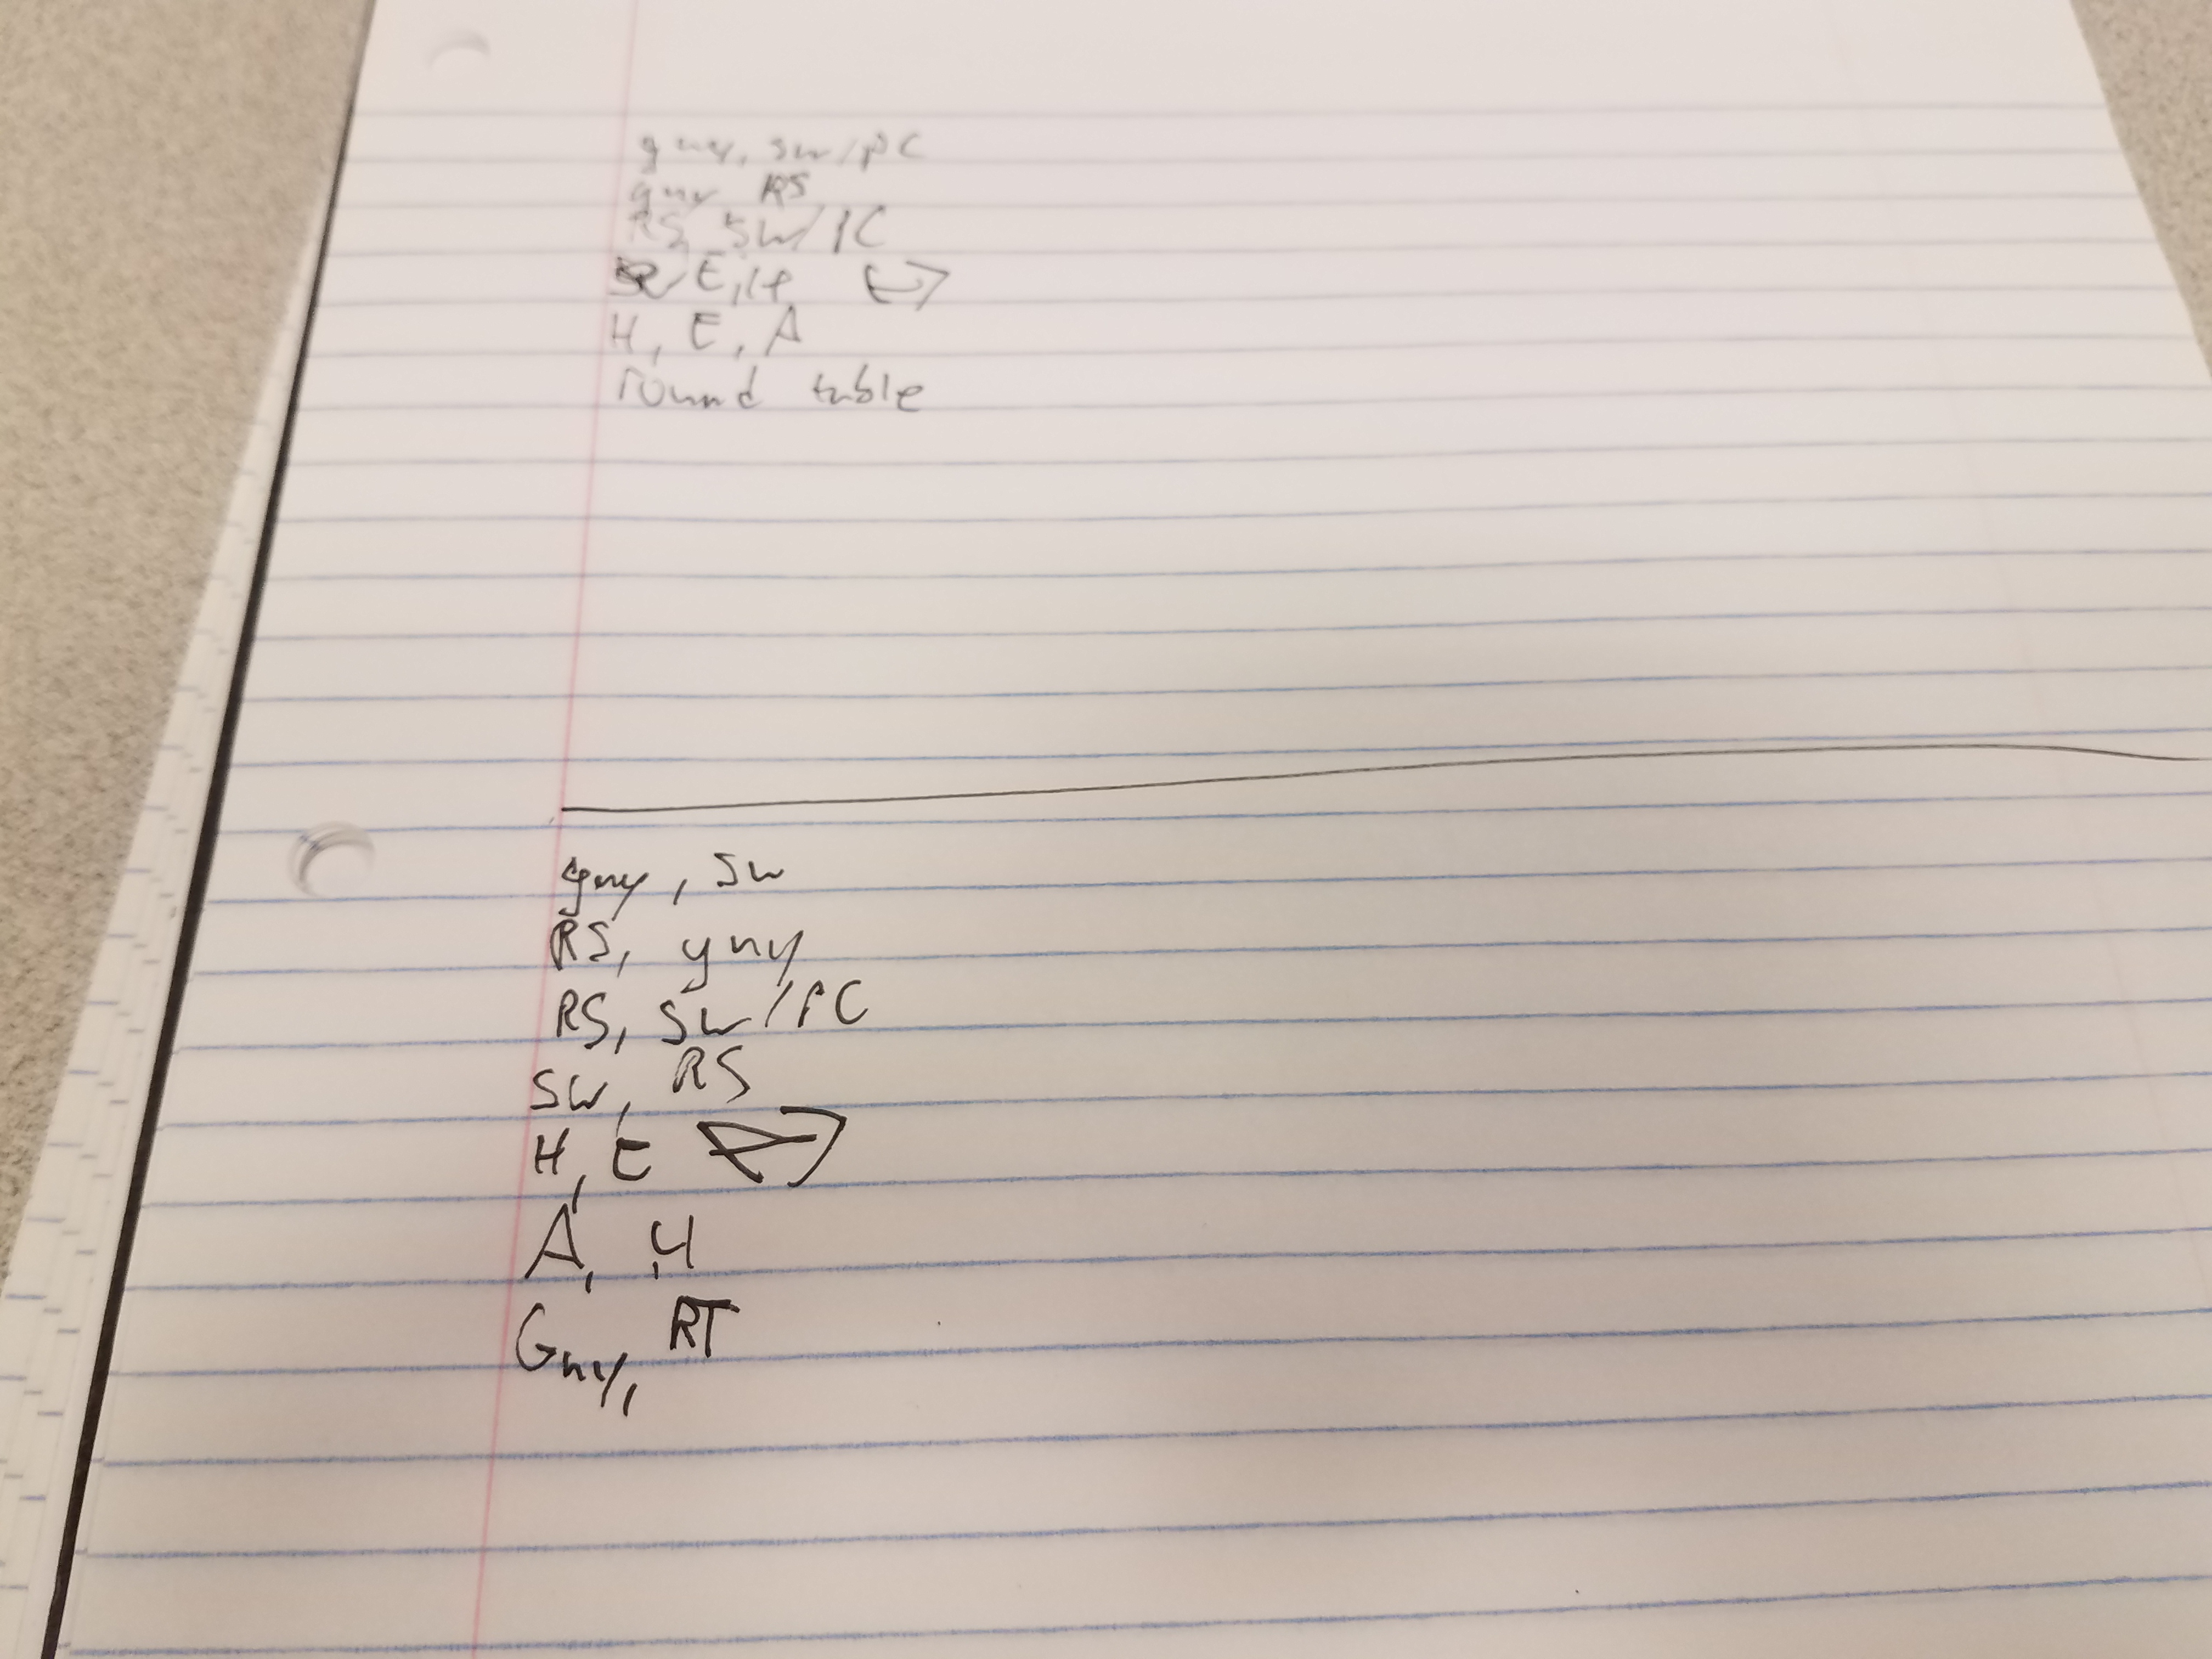 guy, sw/PC
guy RS
RS, SW/PC
E, H
H, E, A
round table
guy, SW
RS, guy
RS, SW/PC
SW, RS
H, E
A, H
Guy, RT